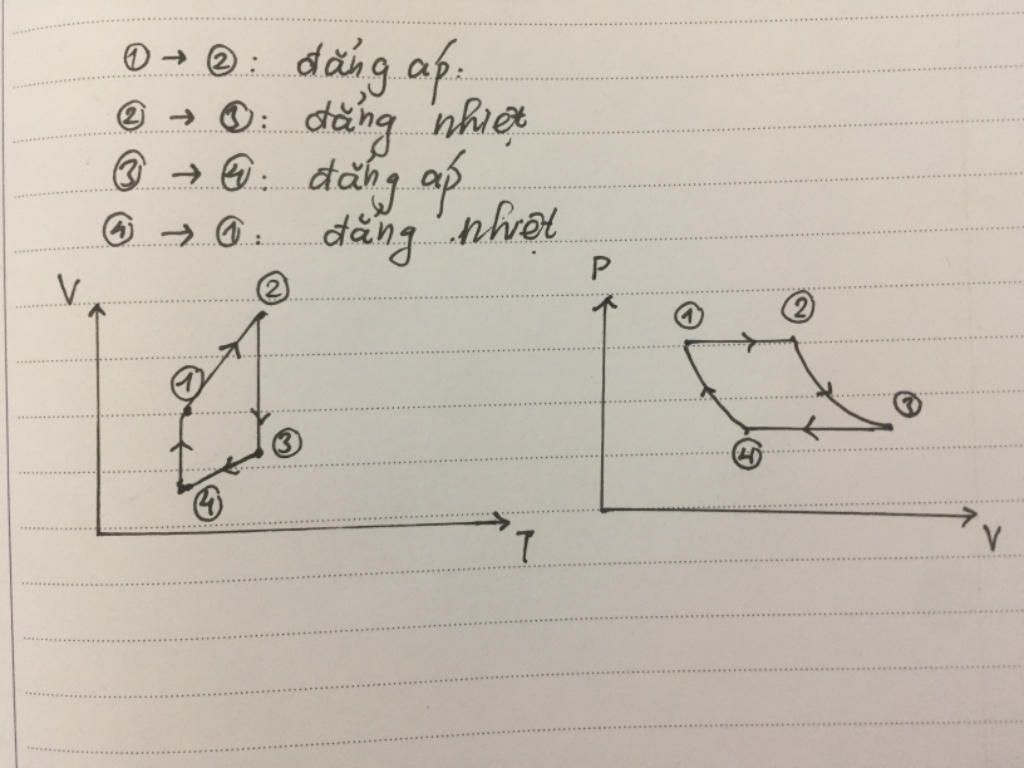 ① → ②: đẳng áp.
② → ③: đẳng nhiệt
③ → ④: đẳng áp
④ → ①: đẳng nhiệt
V ② ① ③ ④ T
P ① ② ③ ④ V